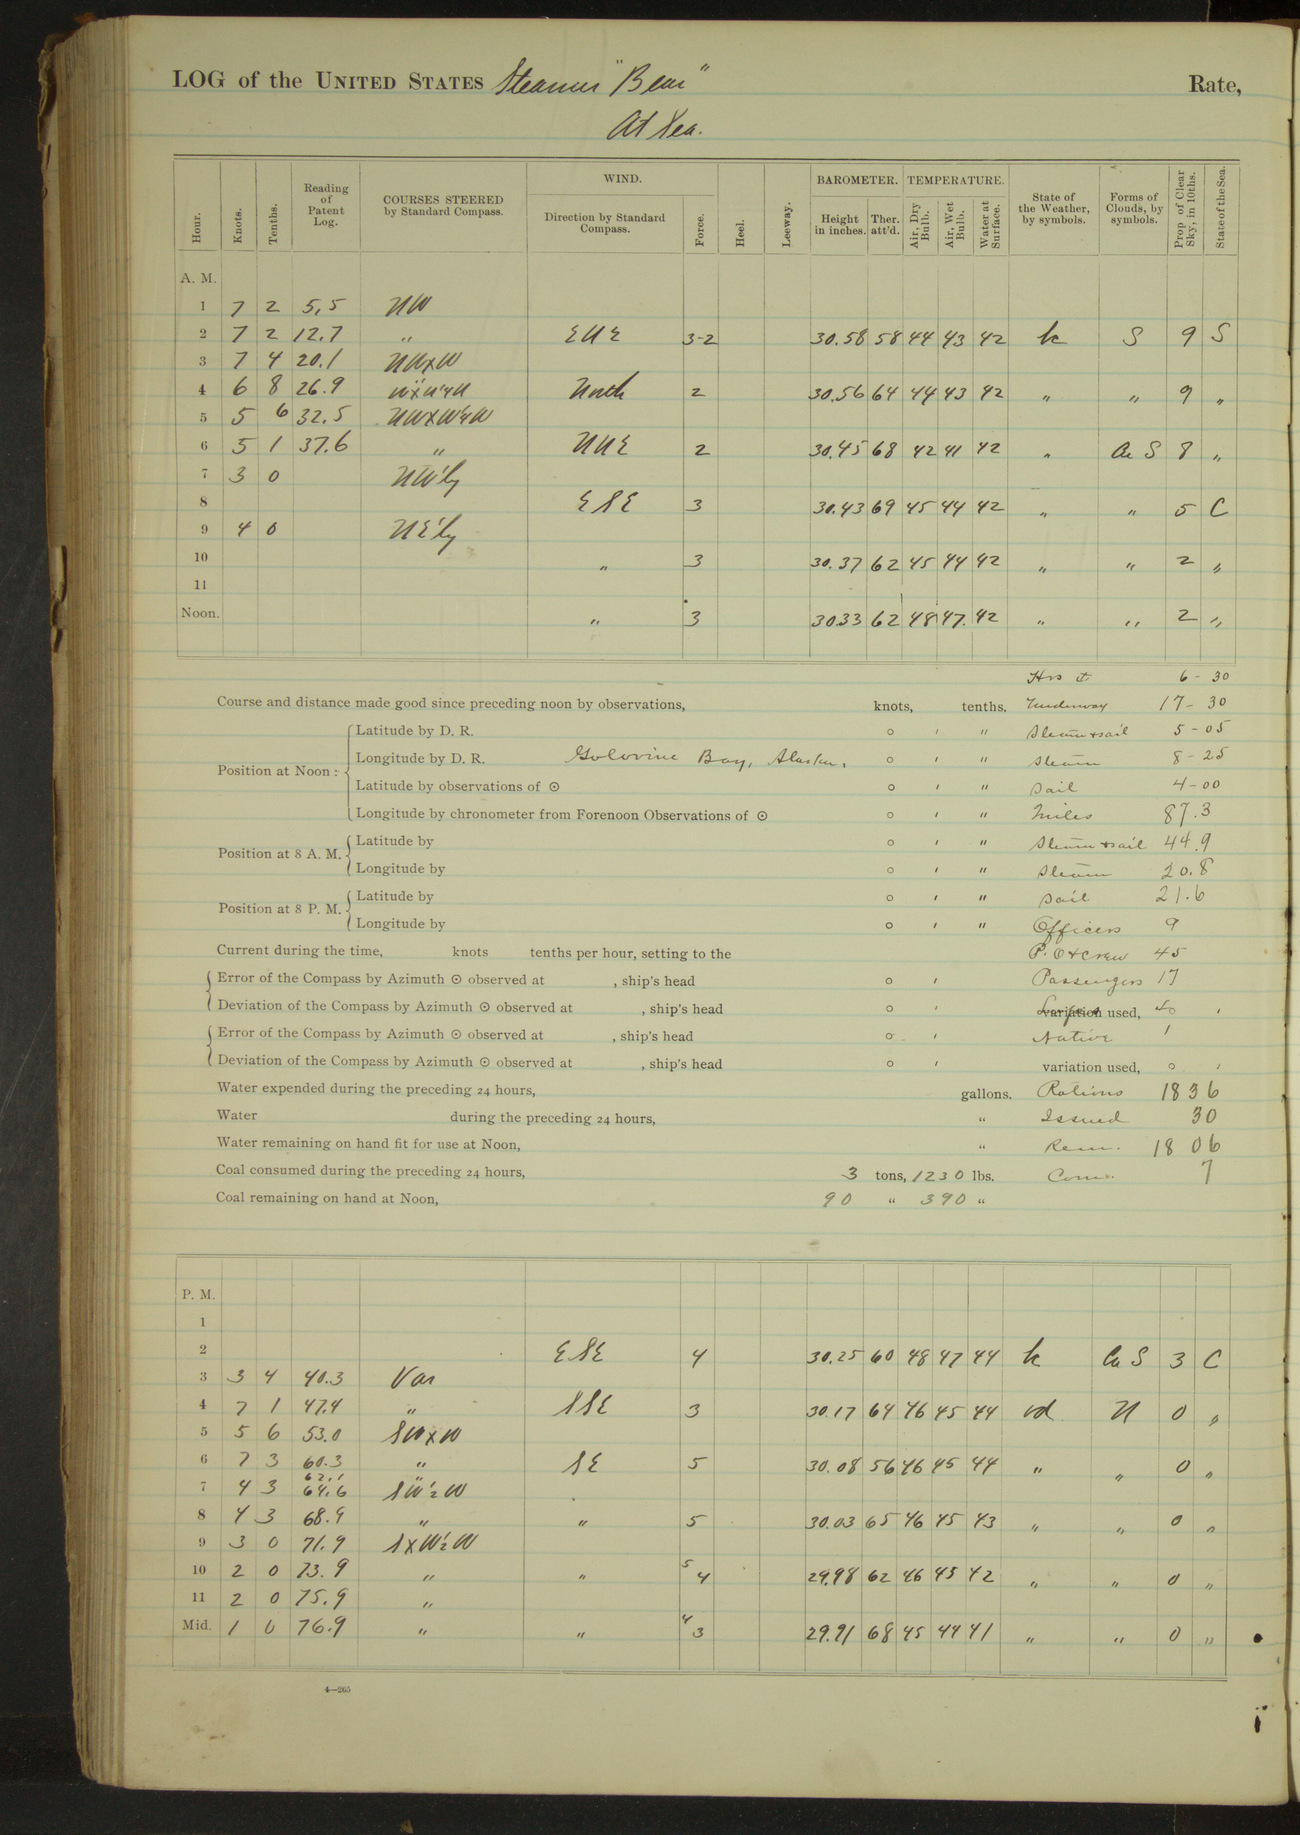 LOG of the UNITED STATES Steamer "Bear" Rate,
At Sea.
Hour. Knots. Tenths. Reading of Patent Log. COURSES STEERED by Standard Compass. WIND. Direction by Standard Compass. Force. Heel. Leeway. BAROMETER. Height in inches. Ther. att'd. TEMPERATURE. Air, Dry Bulb. Air, Wet Bulb. Water at Surface. State of the Weather, by symbols. Forms of Clouds, by symbols. Prop of Clear Sky, in 10ths. State of the Sea.
A. M.
1 7 2 5.5 NW
2 7 2 12.7 " ENE 3-2 30.58 58 44 43 42 bc S 9 S
3 7 4 20.1 NWxW
4 6 8 26.9 North 2 30.56 64 44 43 42 " " 9 "
5 5 6 32.5
6 5 1 37.6 " NNE 2 30.45 68 42 41 42 " S 8 "
7 3 0 NW'ly
8 ESE 3 30.43 69 45 44 42 " " 5 C
9 4 0 NE'ly
10 " 3 30.37 62 45 44 42 " " 2 "
11
Noon. " 3 30.33 62 48 47 42 " " 2 "
Hrs 6-30
Course and distance made good since preceding noon by observations, knots, tenths. Underway 17-30
Latitude by D. R. ° ' " Steam & sail 5-05
Position at Noon: Longitude by D. R. Golovine Bay, Alaska. ° ' " Steam 8-25
Latitude by observations of ☉ ° ' " Sail 4-00
Longitude by chronometer from Forenoon Observations of ☉ ° ' " Miles 87.3
Position at 8 A. M. Latitude by ° ' " Steam & sail 44.9
Longitude by ° ' " Steam 20.8
Position at 8 P. M. Latitude by ° ' " Sail 21.6
Longitude by ° ' " Officers 9
Current during the time, knots tenths per hour, setting to the P. O & crew 45
Error of the Compass by Azimuth ☉ observed at , ship's head ° ' Passengers 17
Deviation of the Compass by Azimuth ☉ observed at , ship's head ° ' variation used, '
Error of the Compass by Azimuth ☉ observed at , ship's head ° ' Native 1
Deviation of the Compass by Azimuth ☉ observed at , ship's head ° ' variation used, ° '
Water expended during the preceding 24 hours, gallons. Rations 1836
Water during the preceding 24 hours, " Issued 30
Water remaining on hand fit for use at Noon, " Rem. 1806
Coal consumed during the preceding 24 hours, 3 tons, 1230 lbs. Com. 7
Coal remaining on hand at Noon, 90 " 390 "
P. M.
1
2 ESE 4 30.25 60 48 47 44 bc Cu S 3 C
3 3 4 40.3 Var
4 7 1 47.4 " SSE 3 30.17 64 46 45 44 od N 0 "
5 5 6 53.0 SWxW
6 7 3 60.3 " SE 5 30.08 56 46 45 44 " " 0 "
62.1
7 4 3 64.6 SW½W
8 4 3 68.9 " " 5 30.03 65 46 45 43 " " 0 "
9 3 0 71.9 SxW½W
10 2 0 73.9 " " 5 4 29.98 62 46 45 42 " " 0 "
11 2 0 75.9 "
Mid. 1 0 76.9 " " 4 3 29.91 68 45 44 41 " " 0 "
4—265